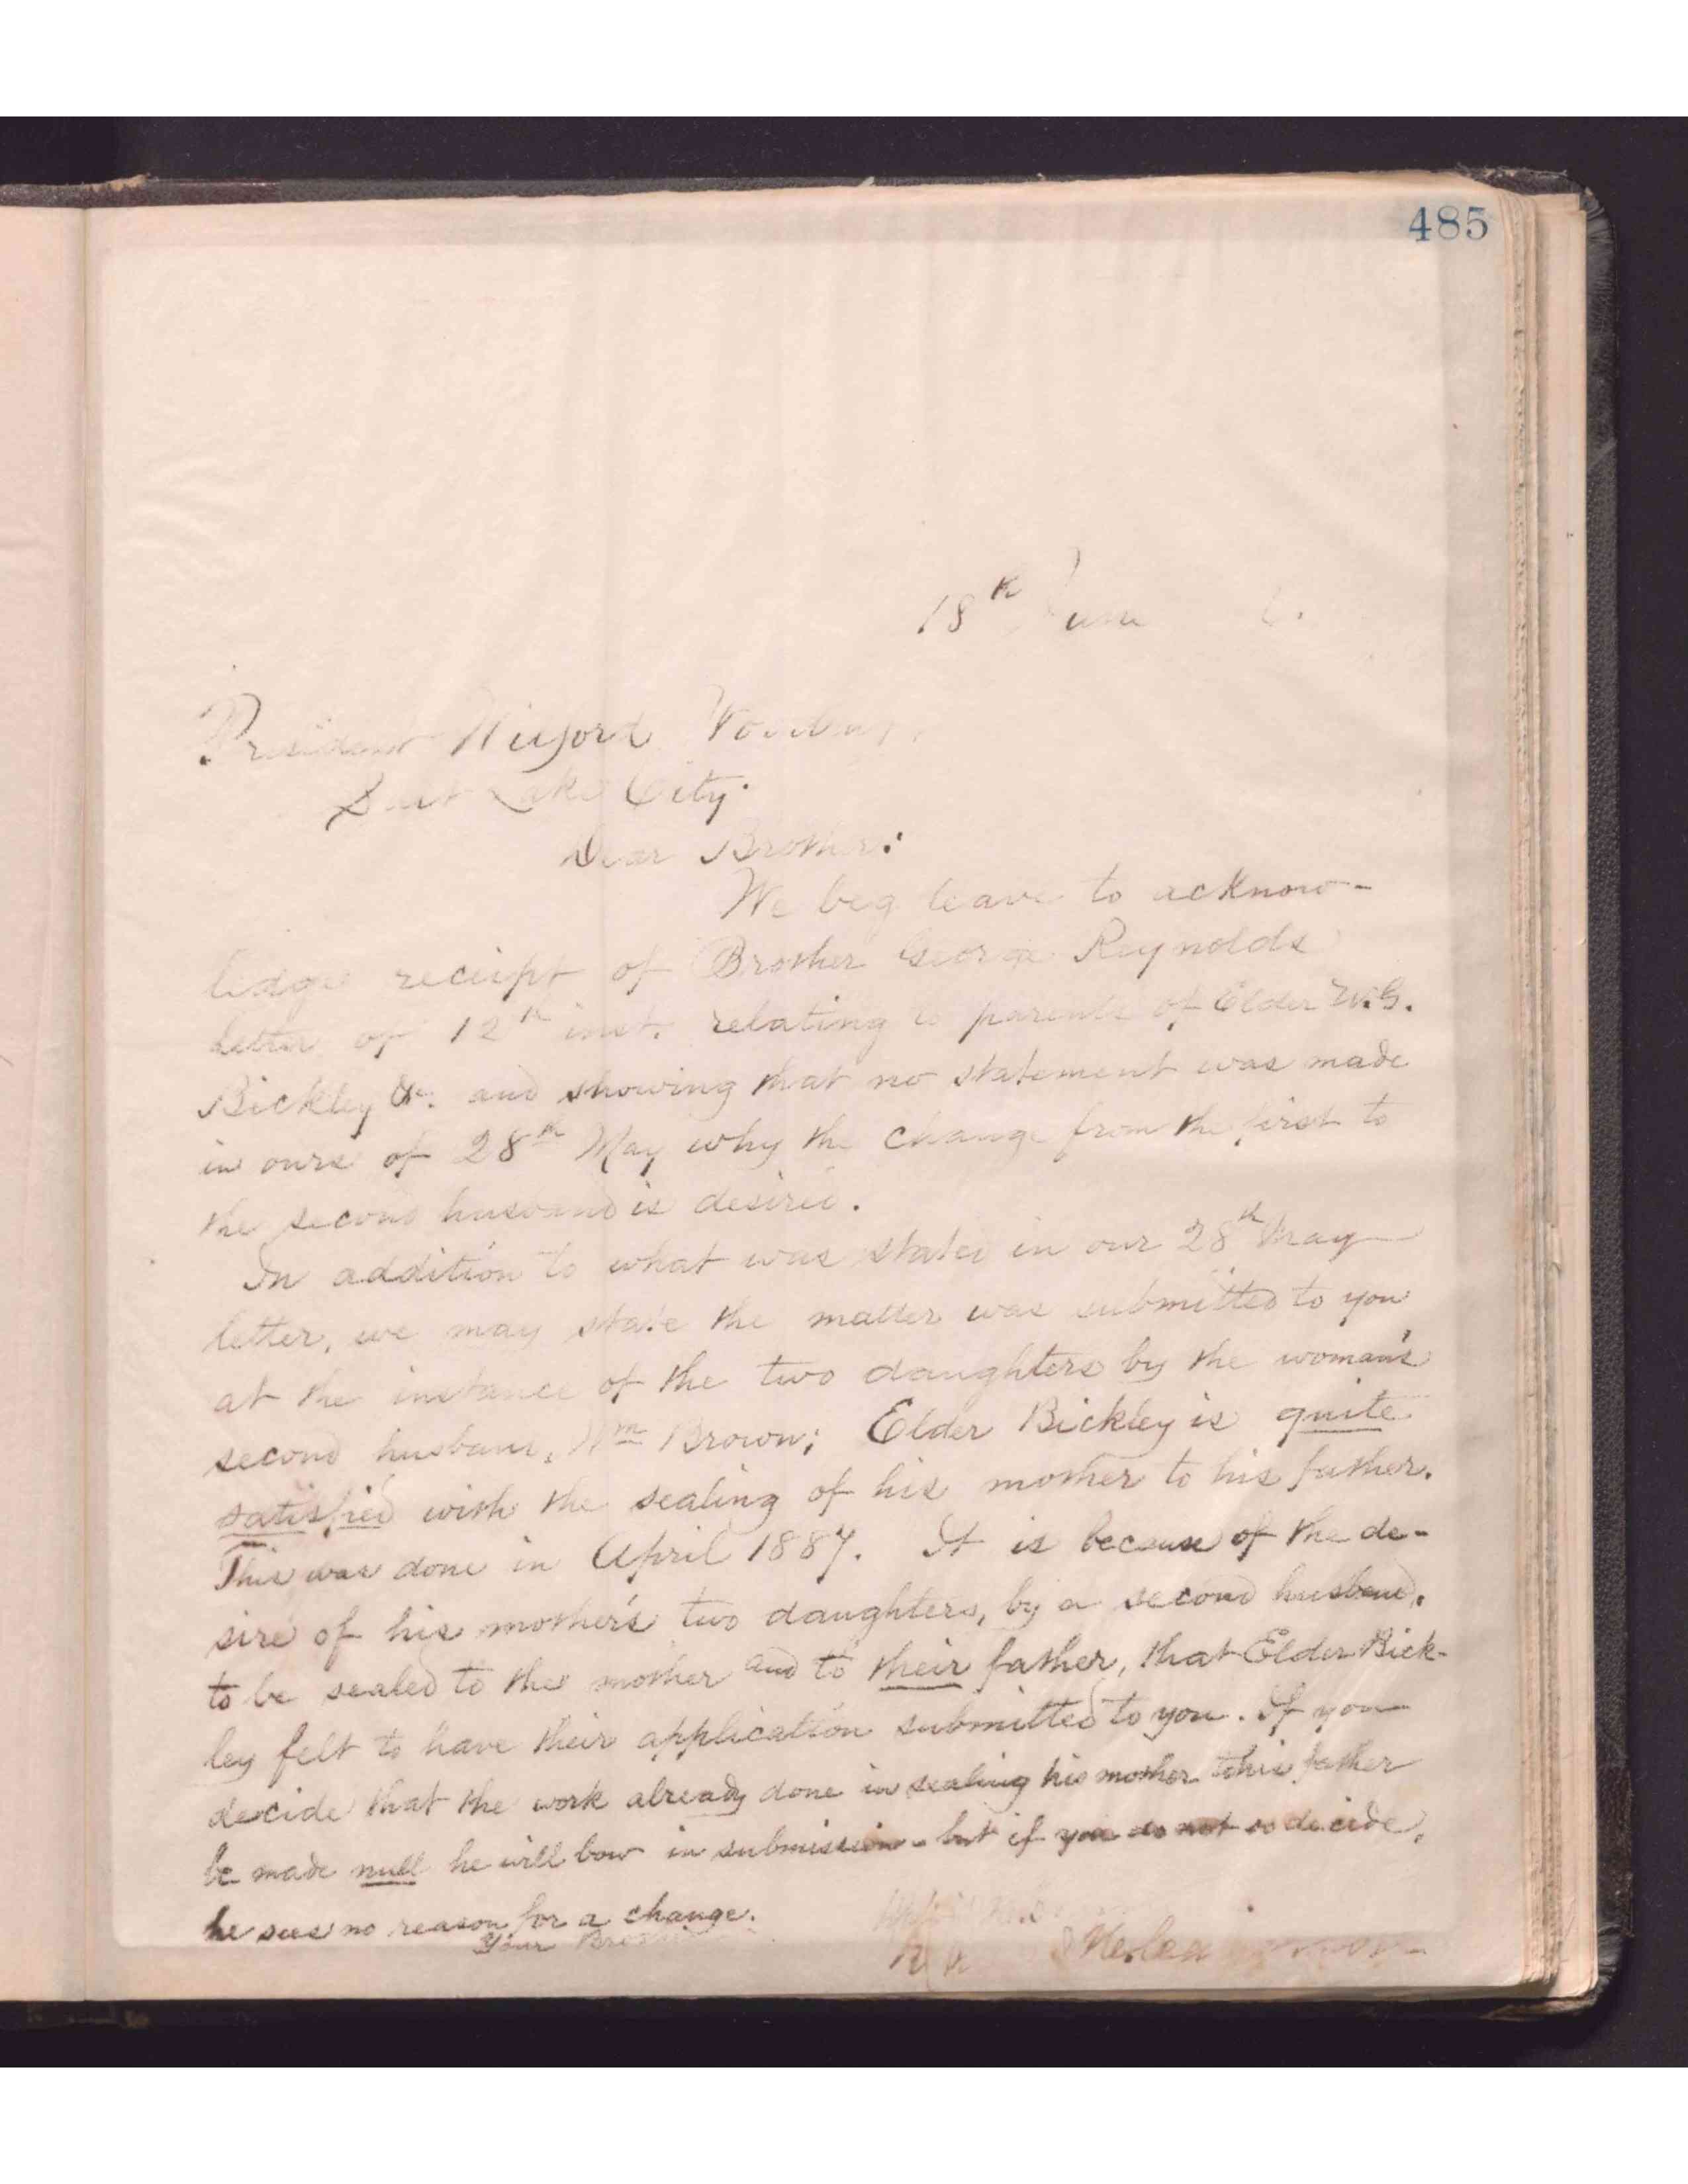 485
18th June
President Wilford Woodruff,
Salt Lake City.
Dear Brother:
We beg leave to acknow-
ledge receipt of Brother George Reynolds
letter of 12th inst. relating to parents of Elder W.G.
Bickley &c. and showing that no statement was made
in ours of 28th May why the change from the first to
the second husband is desired.
In addition to what was stated in our 28th May
letter, we may state the matter was submitted to you
at the instance of the two daughters by the woman's
second husband, Wm Brown; Elder Bickley is quite
satisfied with the sealing of his mother to his father.
This was done in April 1887. It is because of the de-
sire of his mother's two daughters, by a second husband,
to be sealed to the mother and to their father, that Elder Bick-
ley felt to have their application submitted to you. If you
decide that the work already done in sealing his mother to his father
be made null he will bow in submission - but if you do not so decide,
he sees no reason for a change.
Your Brethren